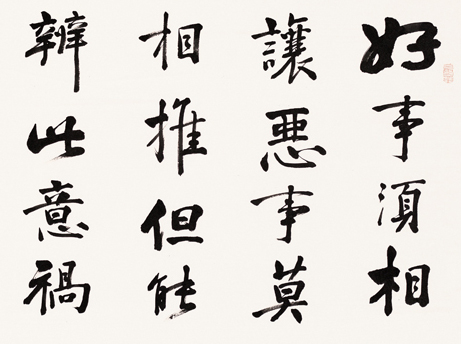 好事須相
讓惡事莫
相推但能
辨此意禍